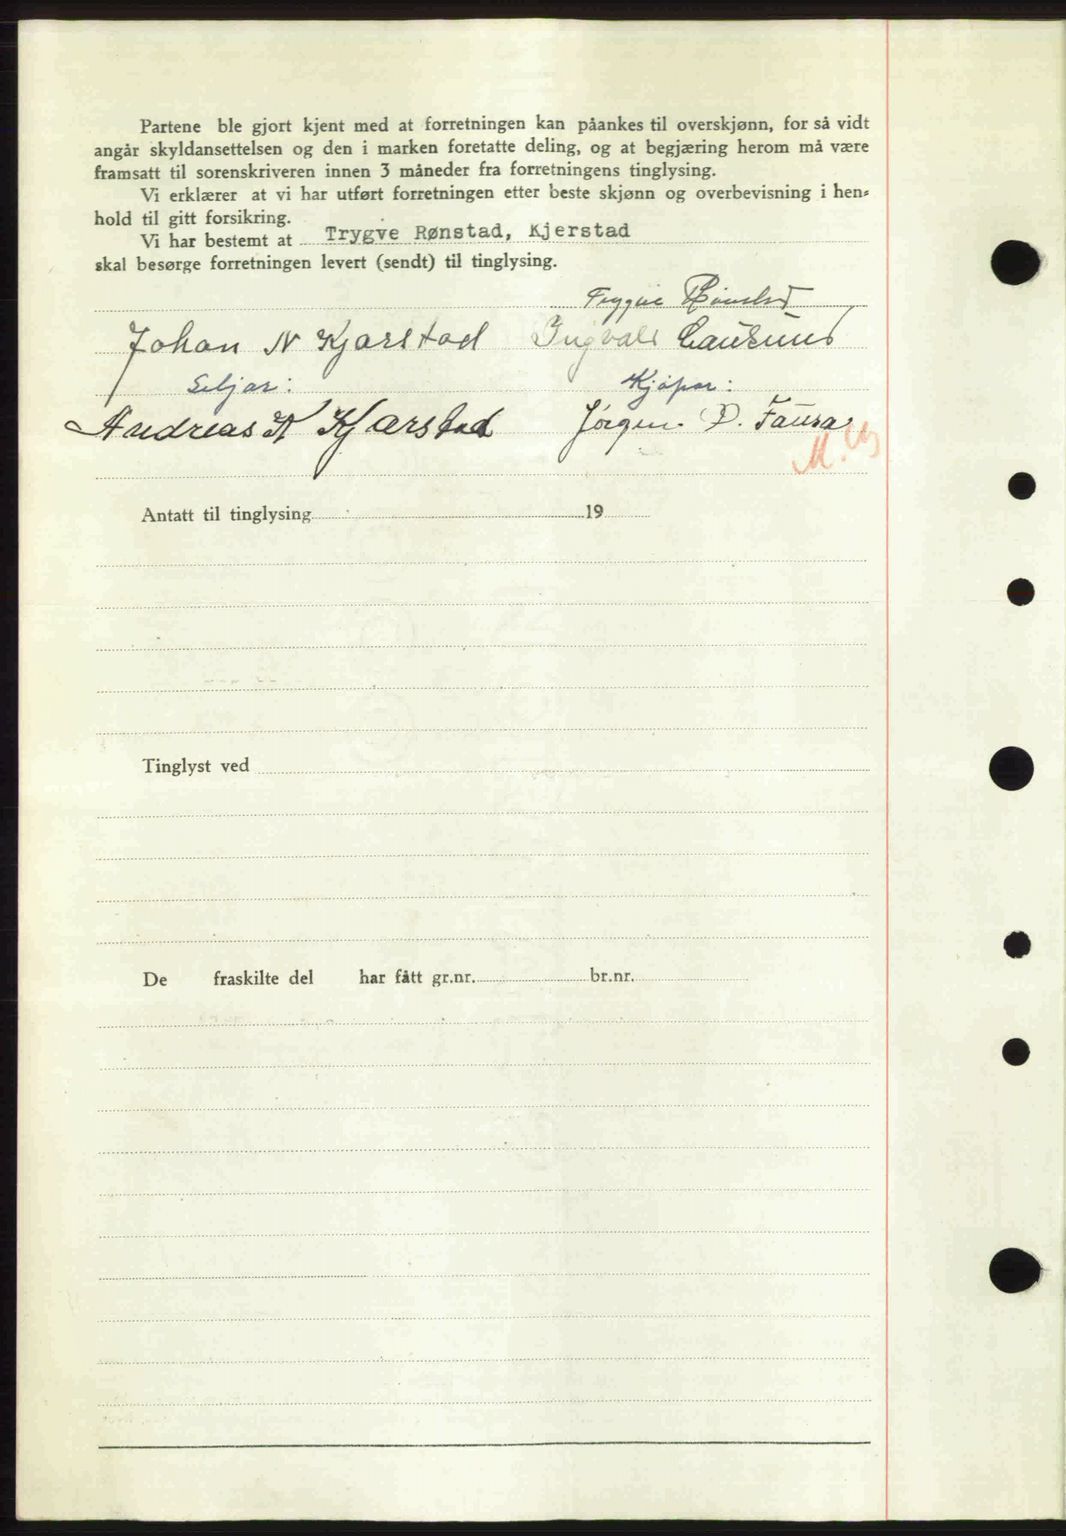 Partene ble gjort kjent med at forretningen kan påankes til overskjønn, for så vidt
angår skyldansettelsen og den i marken foretatte deling, og at begjæring herom må være
framsatt til sorenskriveren innen 3 måneder fra forretningens tinglysing.
Vi erklærer at vi har utført forretningen etter beste skjønn og overbevisning i hen-
hold til gitt forsikring.
Vi har bestemt at Trygve Rønstad, Kjerstad
skal besørge forretningen levert (sendt) til tinglysing.
Trygve Rønstad
Johan N Kjærstad Ingvald Laursund
Seljar: Kjøpar:
Andreas K Kjærstad Jørgen D. Fausa
Antatt til tinglysing 19
Tinglyst ved
De fraskilte del har fått gr.nr. br.nr.